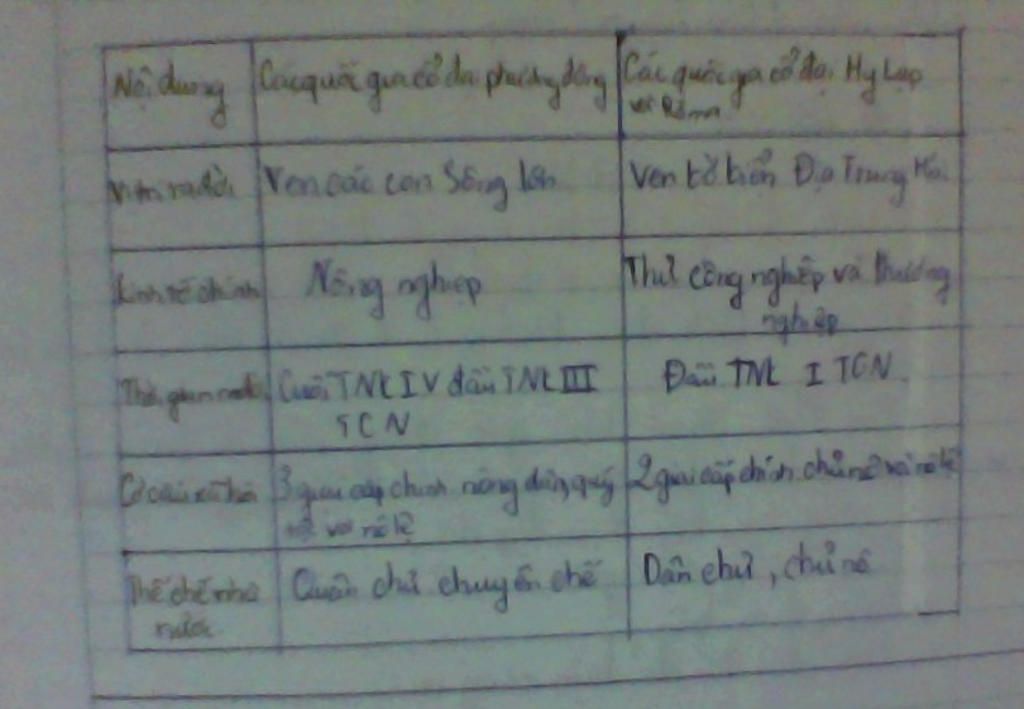 Nội dung
Các quốc gia cổ đại phương đông
Các quốc gia cổ đại Hy Lạp
và Rôma
Vị trí ra đời
Ven các con sông lớn
Ven bờ biển Địa Trung Hải
Kinh tế chính
Nông nghiệp
Thủ công nghiệp và thương
nghiệp
Thời gian ra đời
Cuối TNK IV đầu TNK III
TCN
Đầu TNK I TCN
Cơ cấu xã hội
3 giai cấp chính nông dân, quý
tộc và nô lệ
2 giai cấp chính chủ nô và nô lệ
Thể chế nhà
nước
Quân chủ chuyên chế
Dân chủ, chủ nô